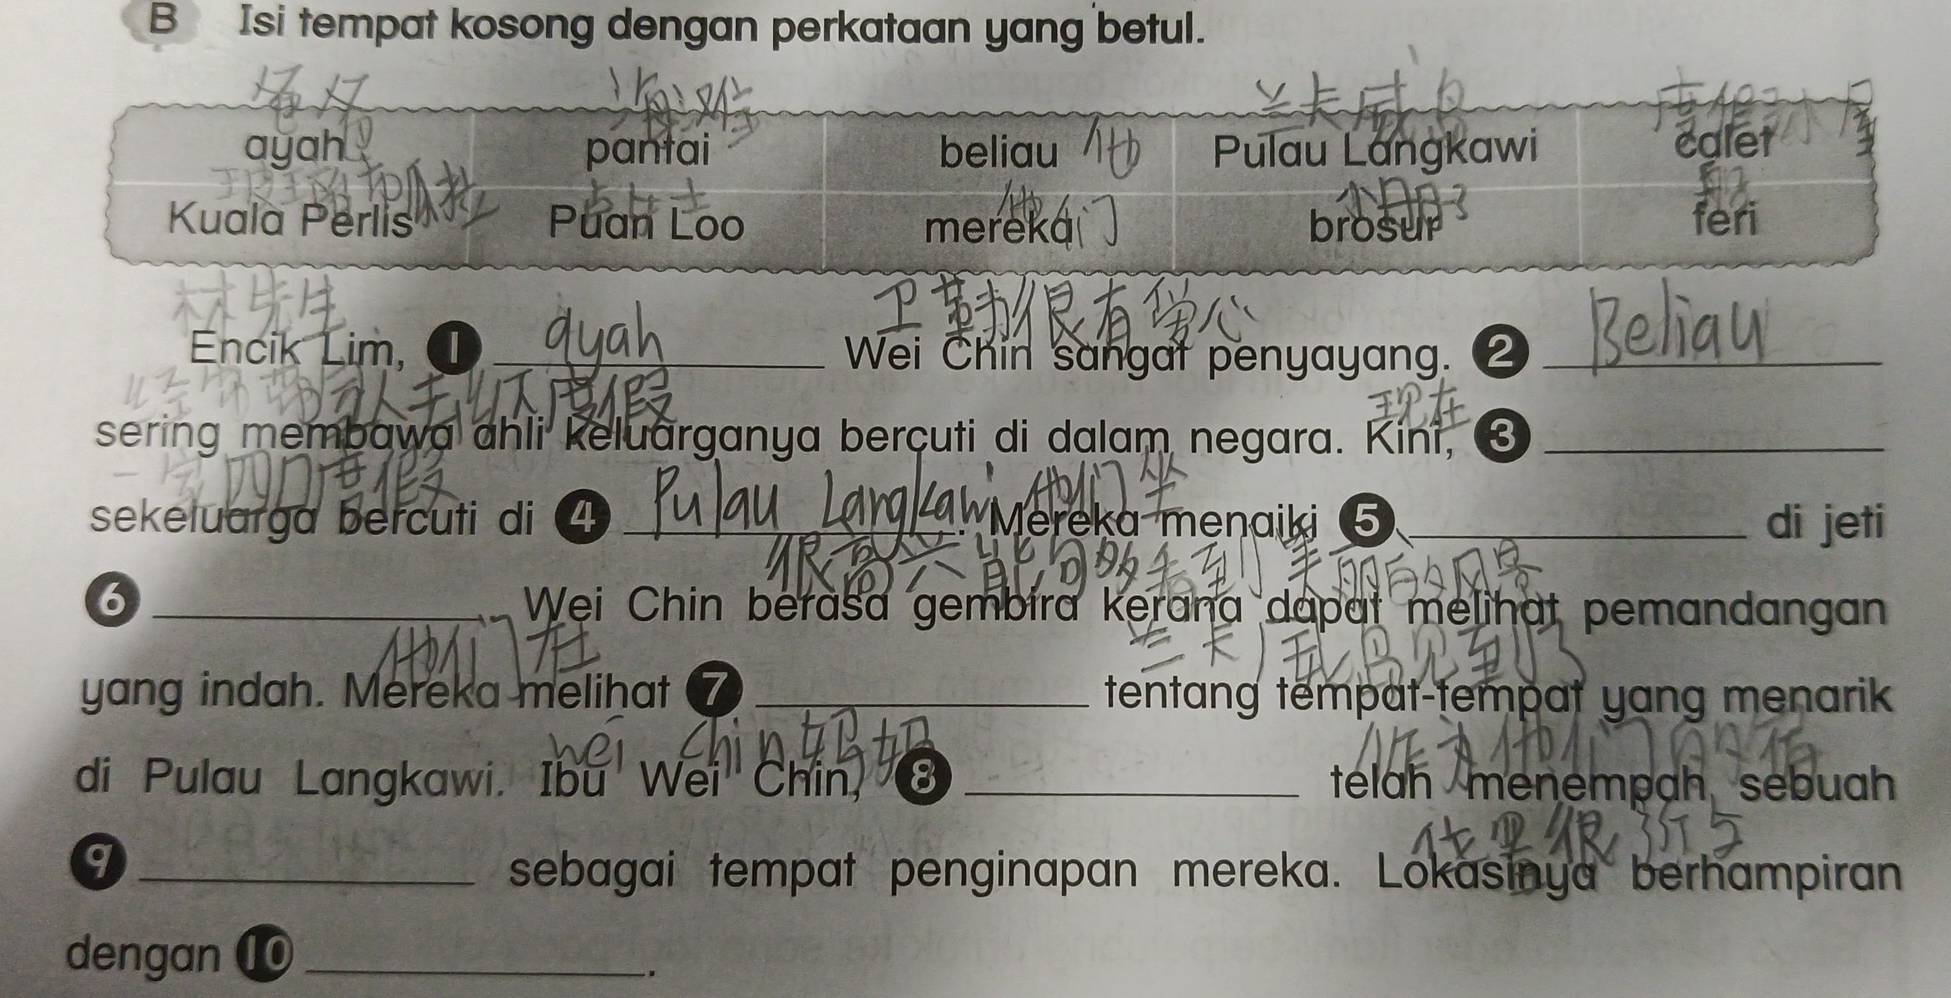 B Isi tempat kosong dengan perkataan yang betul.
爸爸 海滩 兰卡威岛 度假小屋
ayah pantai beliau 他 Pulau Langkawi calet
Kuala Perlis Puan Loo mereka 们 brosur feri
林先生 有爱心
Encik Lim, 1 ayah Wei Chin sangat penyayang. 2 Beliau
度假 现在
sering membawa ahli keluarganya bercuti di dalam negara. Kini, 3
度假 他们坐
sekeluarga bercuti di 4 Pulau Langkawi. Mereka menaiki 5 di jeti
很高兴能够看到美丽的风景
6 Wei Chin berasa gembira kerana dapat melihat pemandangan
他们在
yang indah. Mereka melihat 7 tentang tempat-tempat yang menarik
Wei Chin 妈妈
di Pulau Langkawi. Ibu Wei Chin, 8 telah menempah sebuah
9 sebagai tempat penginapan mereka. Lokasinya berhampiran
dengan 10 .